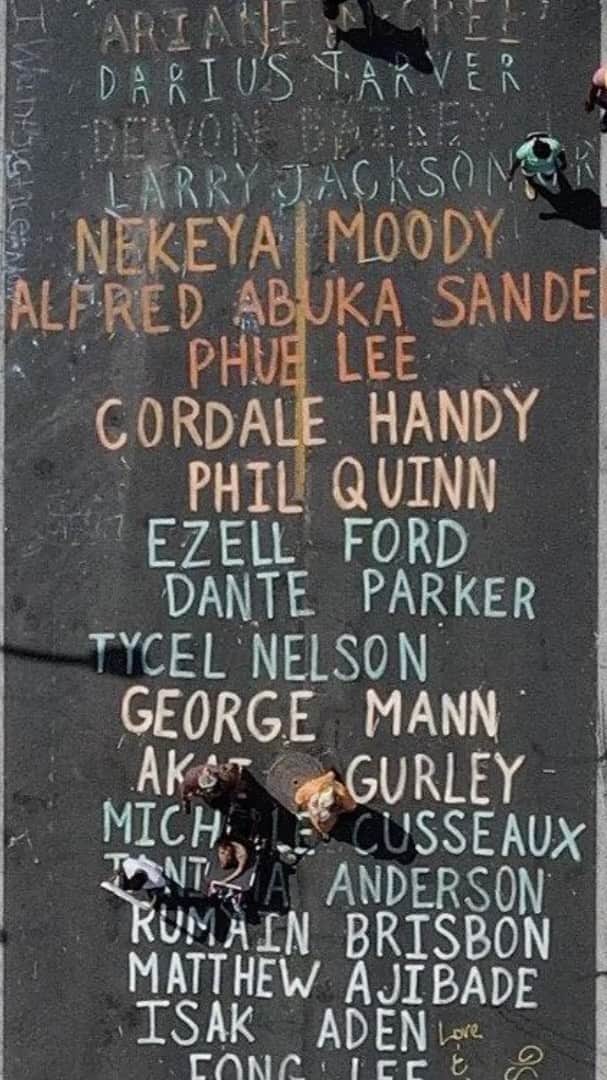 DARIUS TARVER
LARRY JACKSON
NEKEYA MOODY
ALFRED ABUKA SANDE
PHUE LEE
CORDALE HANDY
PHIL QUINN
EZELL FORD
DANTE PARKER
TYCEL NELSON
GEORGE MANN
GURLEY
CUSSEAUX
ANDERSON
RUMAIN BRISBON
MATTHEW AJIBADE
ISAK ADEN
Love
&
FONG LEE